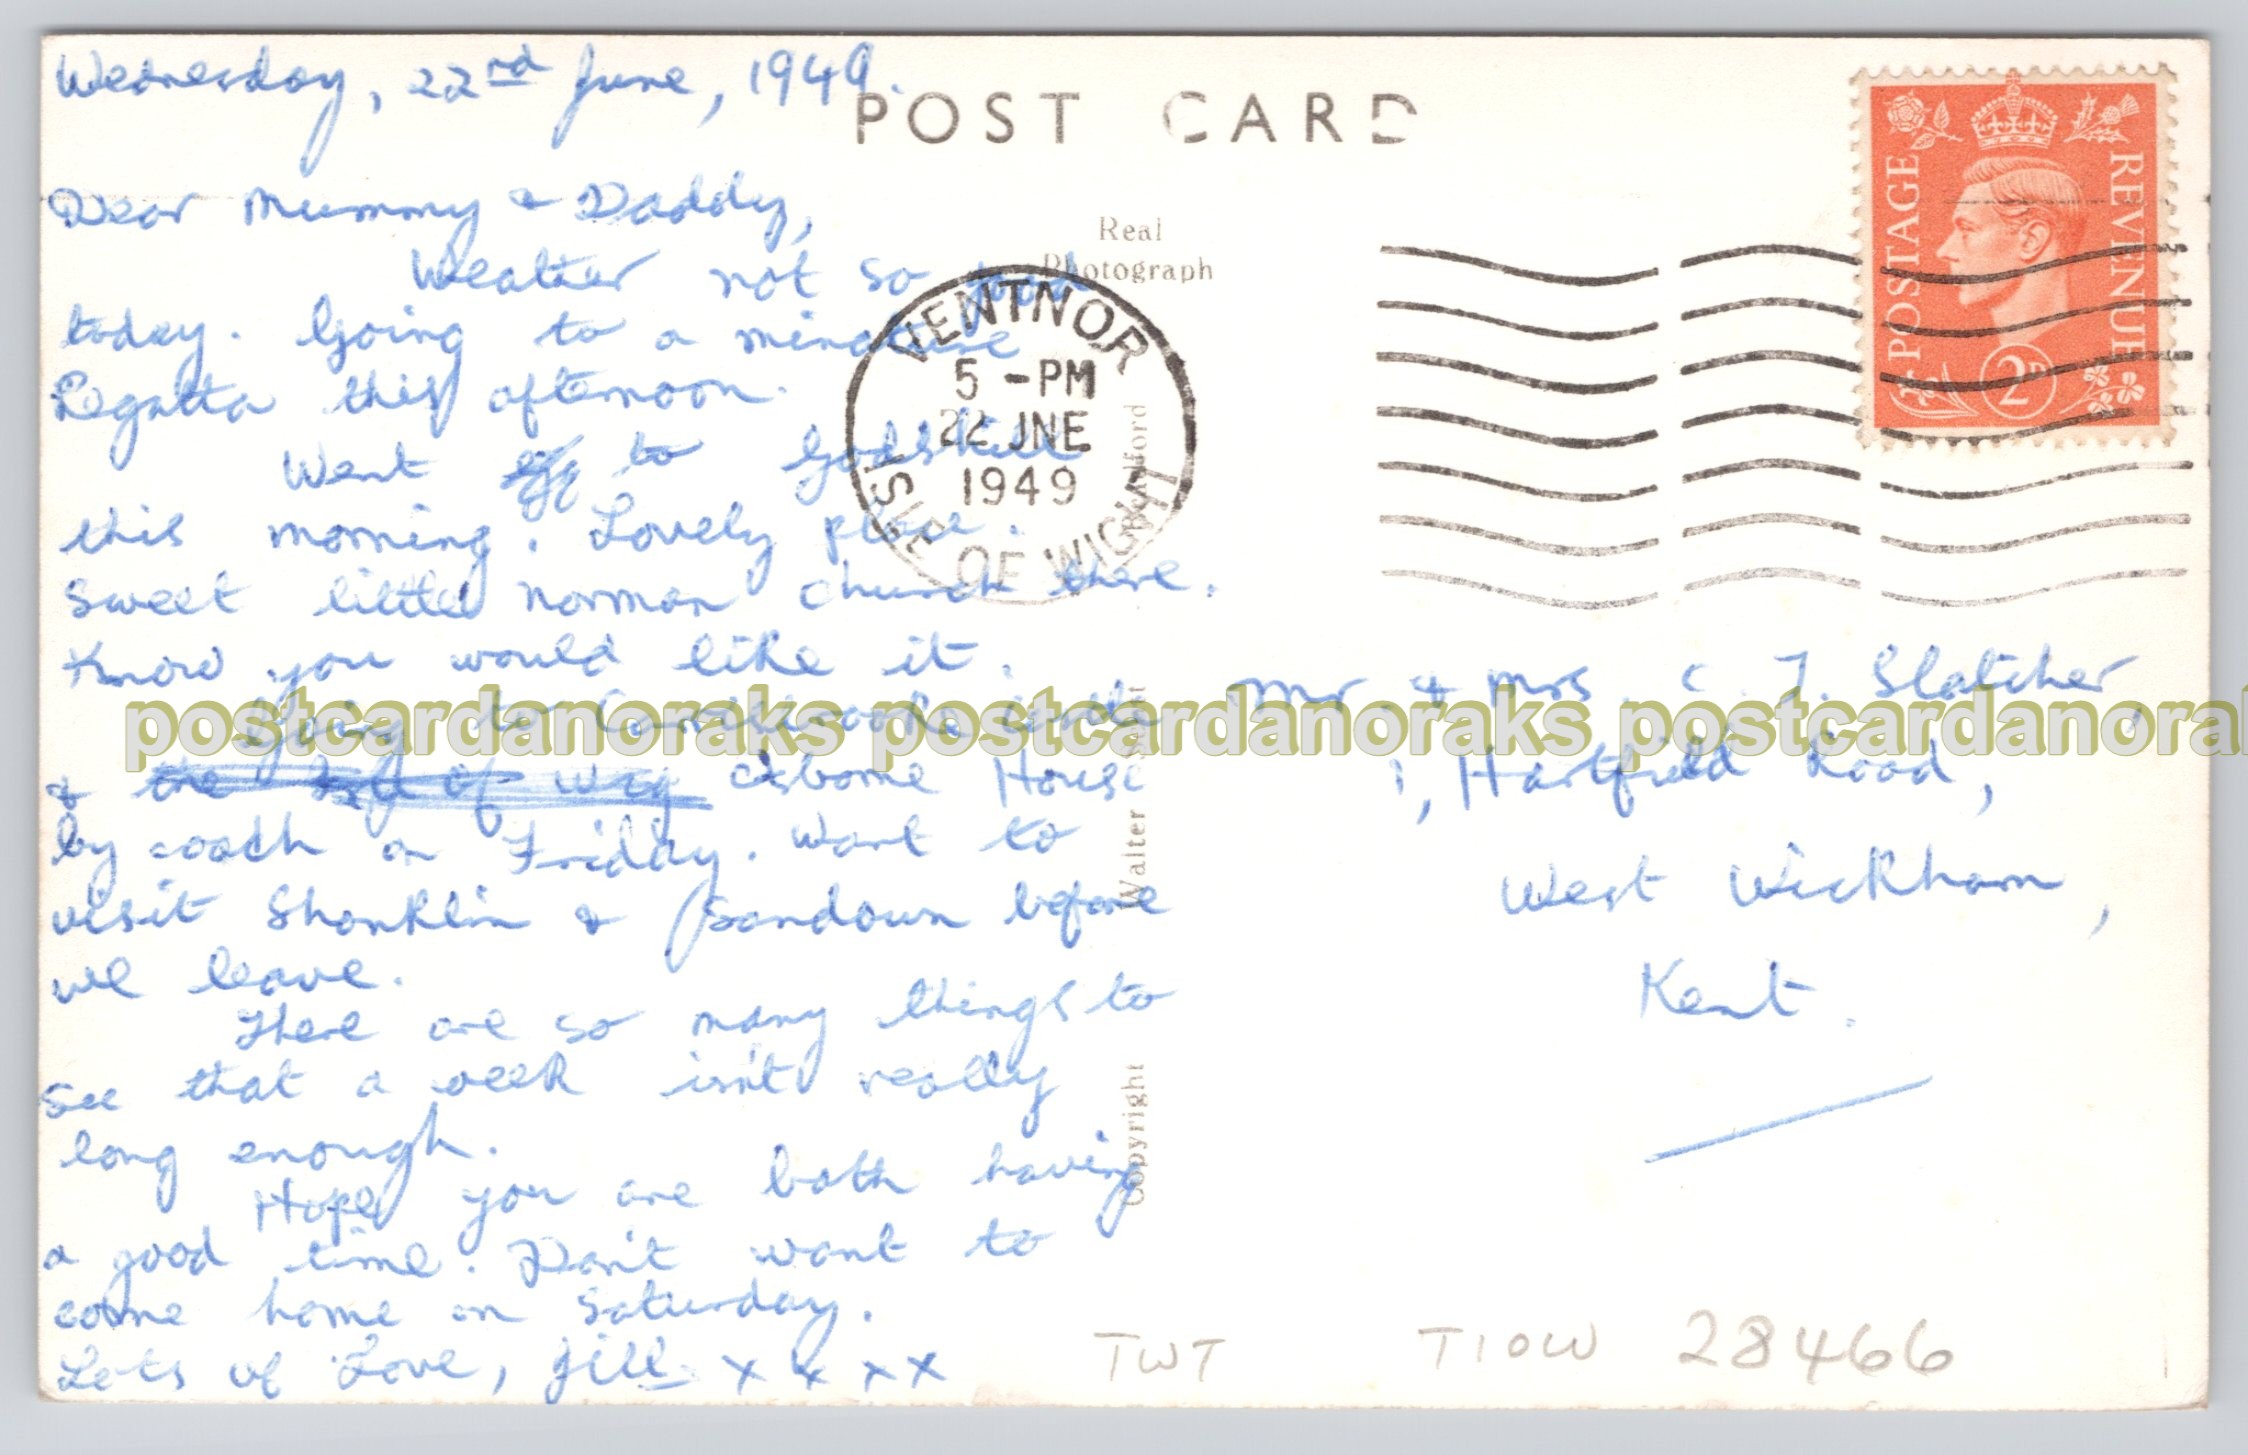 Wednesday, 22nd June, 1949.
POST CARD
Dear Mummy & Daddy,
Weather not so good
today. Going to a miniature
Regatta this afternoon.
Went to Godshill
this morning. Lovely place.
Sweet little norman church there.
Know you would like it.
Going to
& the Isle of Wig Osborne House
by coach on Friday. Want to
visit Shanklin & Sandown before
we leave.
There are so many things to
see that a week isn't really
long enough.
Hope you are both having
a good time. Don't want to
come home on Saturday.
Lots of Love, Jill x x x x
Real
Photograph
VENTNOR
5 - PM
22 JNE
1949
ISLE OF WIGHT
Copyright Walter Scott Bradford
POSTAGE REVENUE
2D
Mr. & Mrs. C. J. Slatcher,
1, Hartfield Road,
West Wickham,
Kent.
postcardanoraks postcardanoraks postcardanorak
TWT T10W 28466